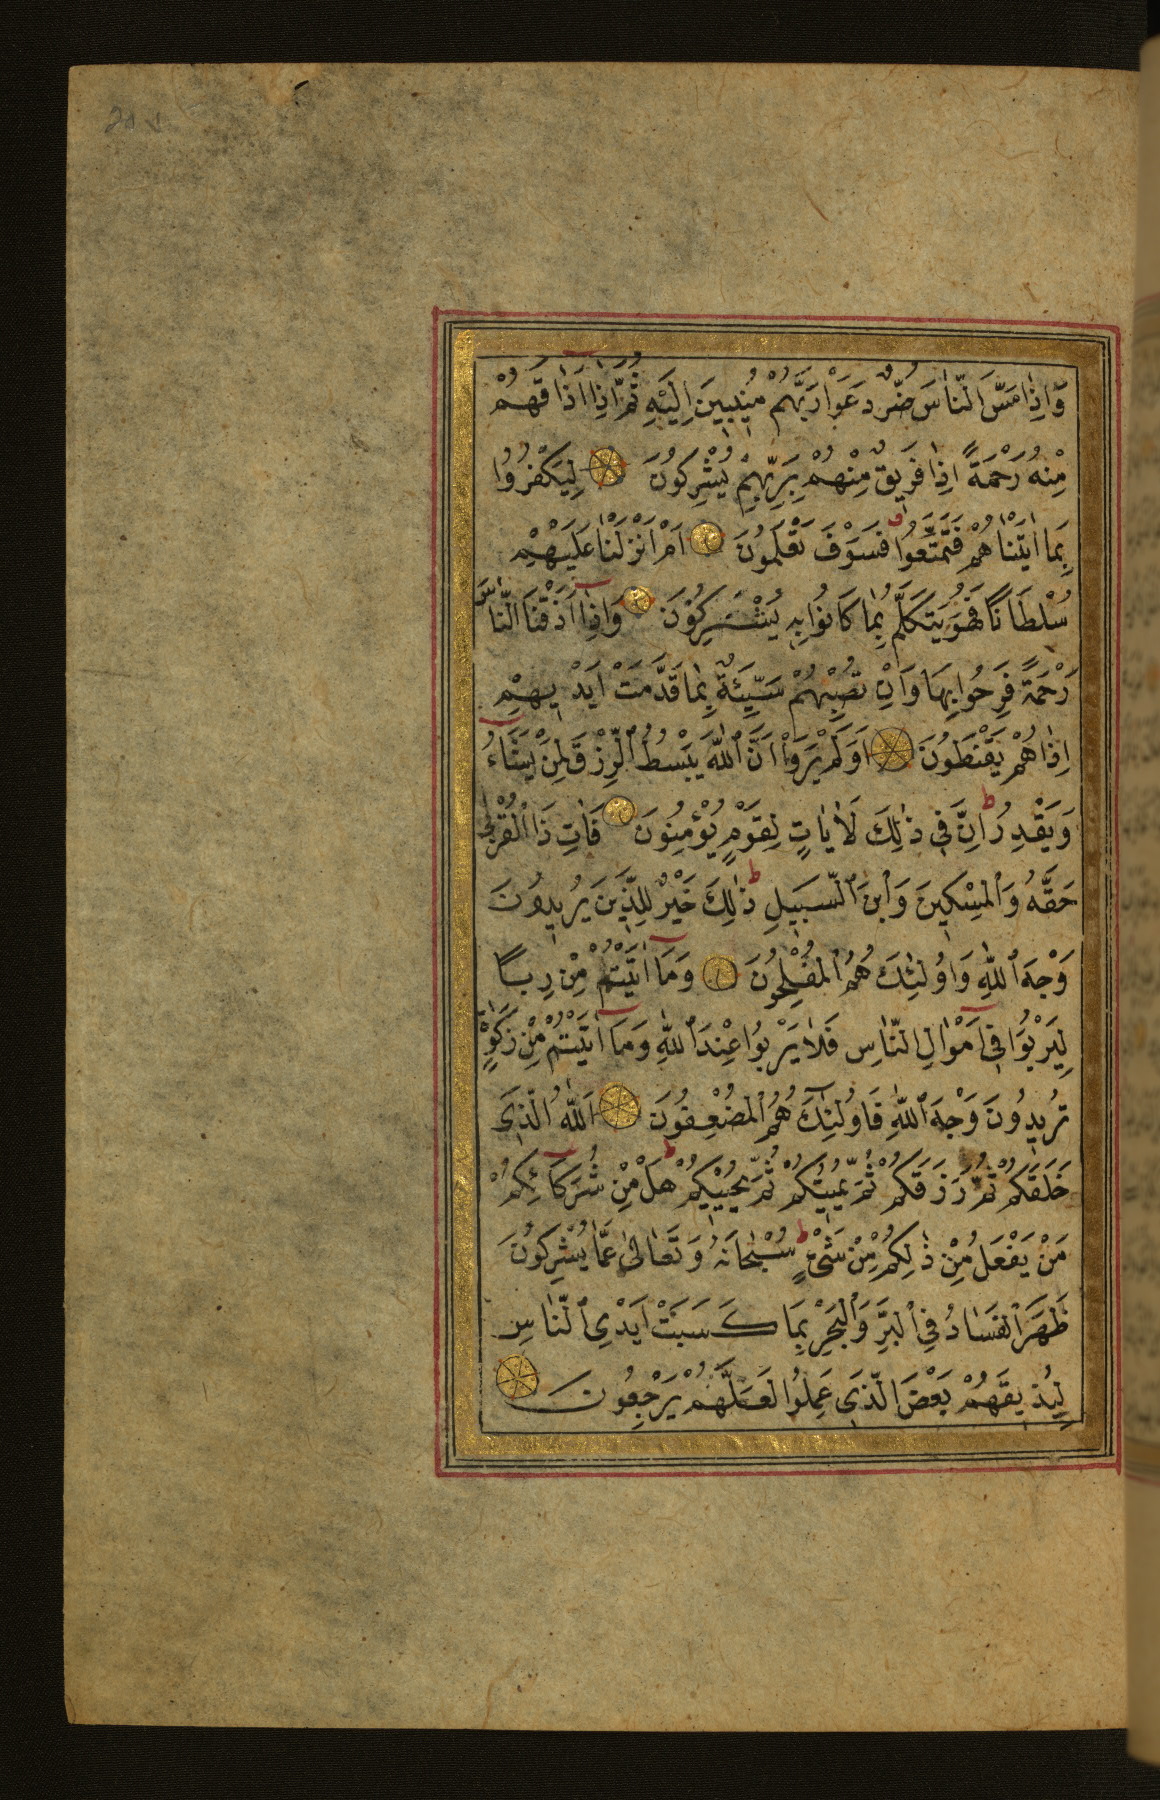 وَإِذَا مَسَّ النَّاسَ ضُرٌّ دَعَوْا رَبَّهُمْ مُنِيبِينَ إِلَيْهِ ثُمَّ إِذَا أَذَاقَهُمْ
مِنْهُ رَحْمَةً إِذَا فَرِيقٌ مِنْهُمْ بِرَبِّهِمْ يُشْرِكُونَ لِيَكْفُرُوا
بِمَا اٰتَيْنَاهُمْ فَتَمَتَّعُوا فَسَوْفَ تَعْلَمُونَ اَمْ اَنْزَلْنَا عَلَيْهِمْ
سُلْطَانًا فَهُوَ يَتَكَلَّمُ بِمَا كَانُوا بِهِ يُشْرِكُونَ وَاِذَا اَذَقْنَا النَّاسَ
رَحْمَةً فَرِحُوا بِهَا وَاِنْ تُصِبْهُمْ سَيِّئَةٌ بِمَا قَدَّمَتْ اَيْدِيهِمْ
اِذَا هُمْ يَقْنَطُونَ اَوَلَمْ يَرَوْا اَنَّ ٱللّٰهَ يَبْسُطُ ٱلرِّزْقَ لِمَنْ يَشَاءُ
وَيَقْدِرُ اِنَّ فِي ذٰلِكَ لَاٰيَاتٍ لِقَوْمٍ يُؤْمِنُونَ فَاٰتِ ذَا ٱلْقُرْبٰى
حَقَّهُ وَٱلْمِسْكِينَ وَٱبْنَ ٱلسَّبِيلِ ذٰلِكَ خَيْرٌ لِلَّذِينَ يُرِيدُونَ
وَجْهَ ٱللّٰهِ وَاُولٰئِكَ هُمُ ٱلْمُفْلِحُونَ وَمَا اٰتَيْتُمْ مِنْ رِبًا
لِيَرْبُوَا فِي اَمْوَالِ النَّاسِ فَلَا يَرْبُوا عِنْدَ ٱللّٰهِ وَمَا اٰتَيْتُمْ مِنْ زَكٰوةٍ
تُرِيدُونَ وَجْهَ ٱللّٰهِ فَاُولٰئِكَ هُمُ ٱلْمُضْعِفُونَ اَللّٰهُ الَّذِي
خَلَقَكُمْ ثُمَّ رَزَقَكُمْ ثُمَّ يُمِيتُكُمْ ثُمَّ يُحْيِيكُمْ هَلْ مِنْ شُرَكَائِكُمْ
مَنْ يَفْعَلُ مِنْ ذٰلِكُمْ مِنْ شَيْءٍ سُبْحَانَهُ وَتَعَالٰى عَمَّا يُشْرِكُونَ
ظَهَرَ ٱلْفَسَادُ فِي ٱلْبَرِّ وَٱلْبَحْرِ بِمَا كَسَبَتْ اَيْدِي ٱلنَّاسِ
لِيُذِيقَهُمْ بَعْضَ الَّذِي عَمِلُوا لَعَلَّهُمْ يَرْجِعُونَ